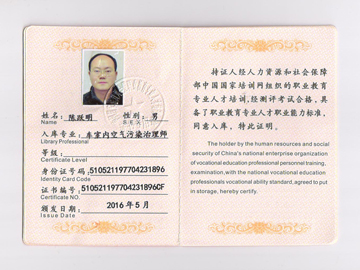 姓名: 陈跃明 性别: 男
Name SEX
入库专业: 车室内空气污染治理师
Library Professional
等级:
Certificate Level
身份证号码: 510521197704231896
Identity Card Code
证书编号: 510521197704231896CF
Certificate NO.
颁发日期: 2016 年 5 月
Issue Date
持证人经人力资源和社会保障
部中国国家培训网组织的职业教育
专业人才培训,经测评考试合格,具
备了职业教育专业人才职业能力标准,
同意入库,特此证明。
The holder by the human resources and social
security of China's national enterprise organization
of vocational education professional personnel training,
examination,with the national vocational education
professionals vocational ability standard,agreed to put
in storage, hereby certify.